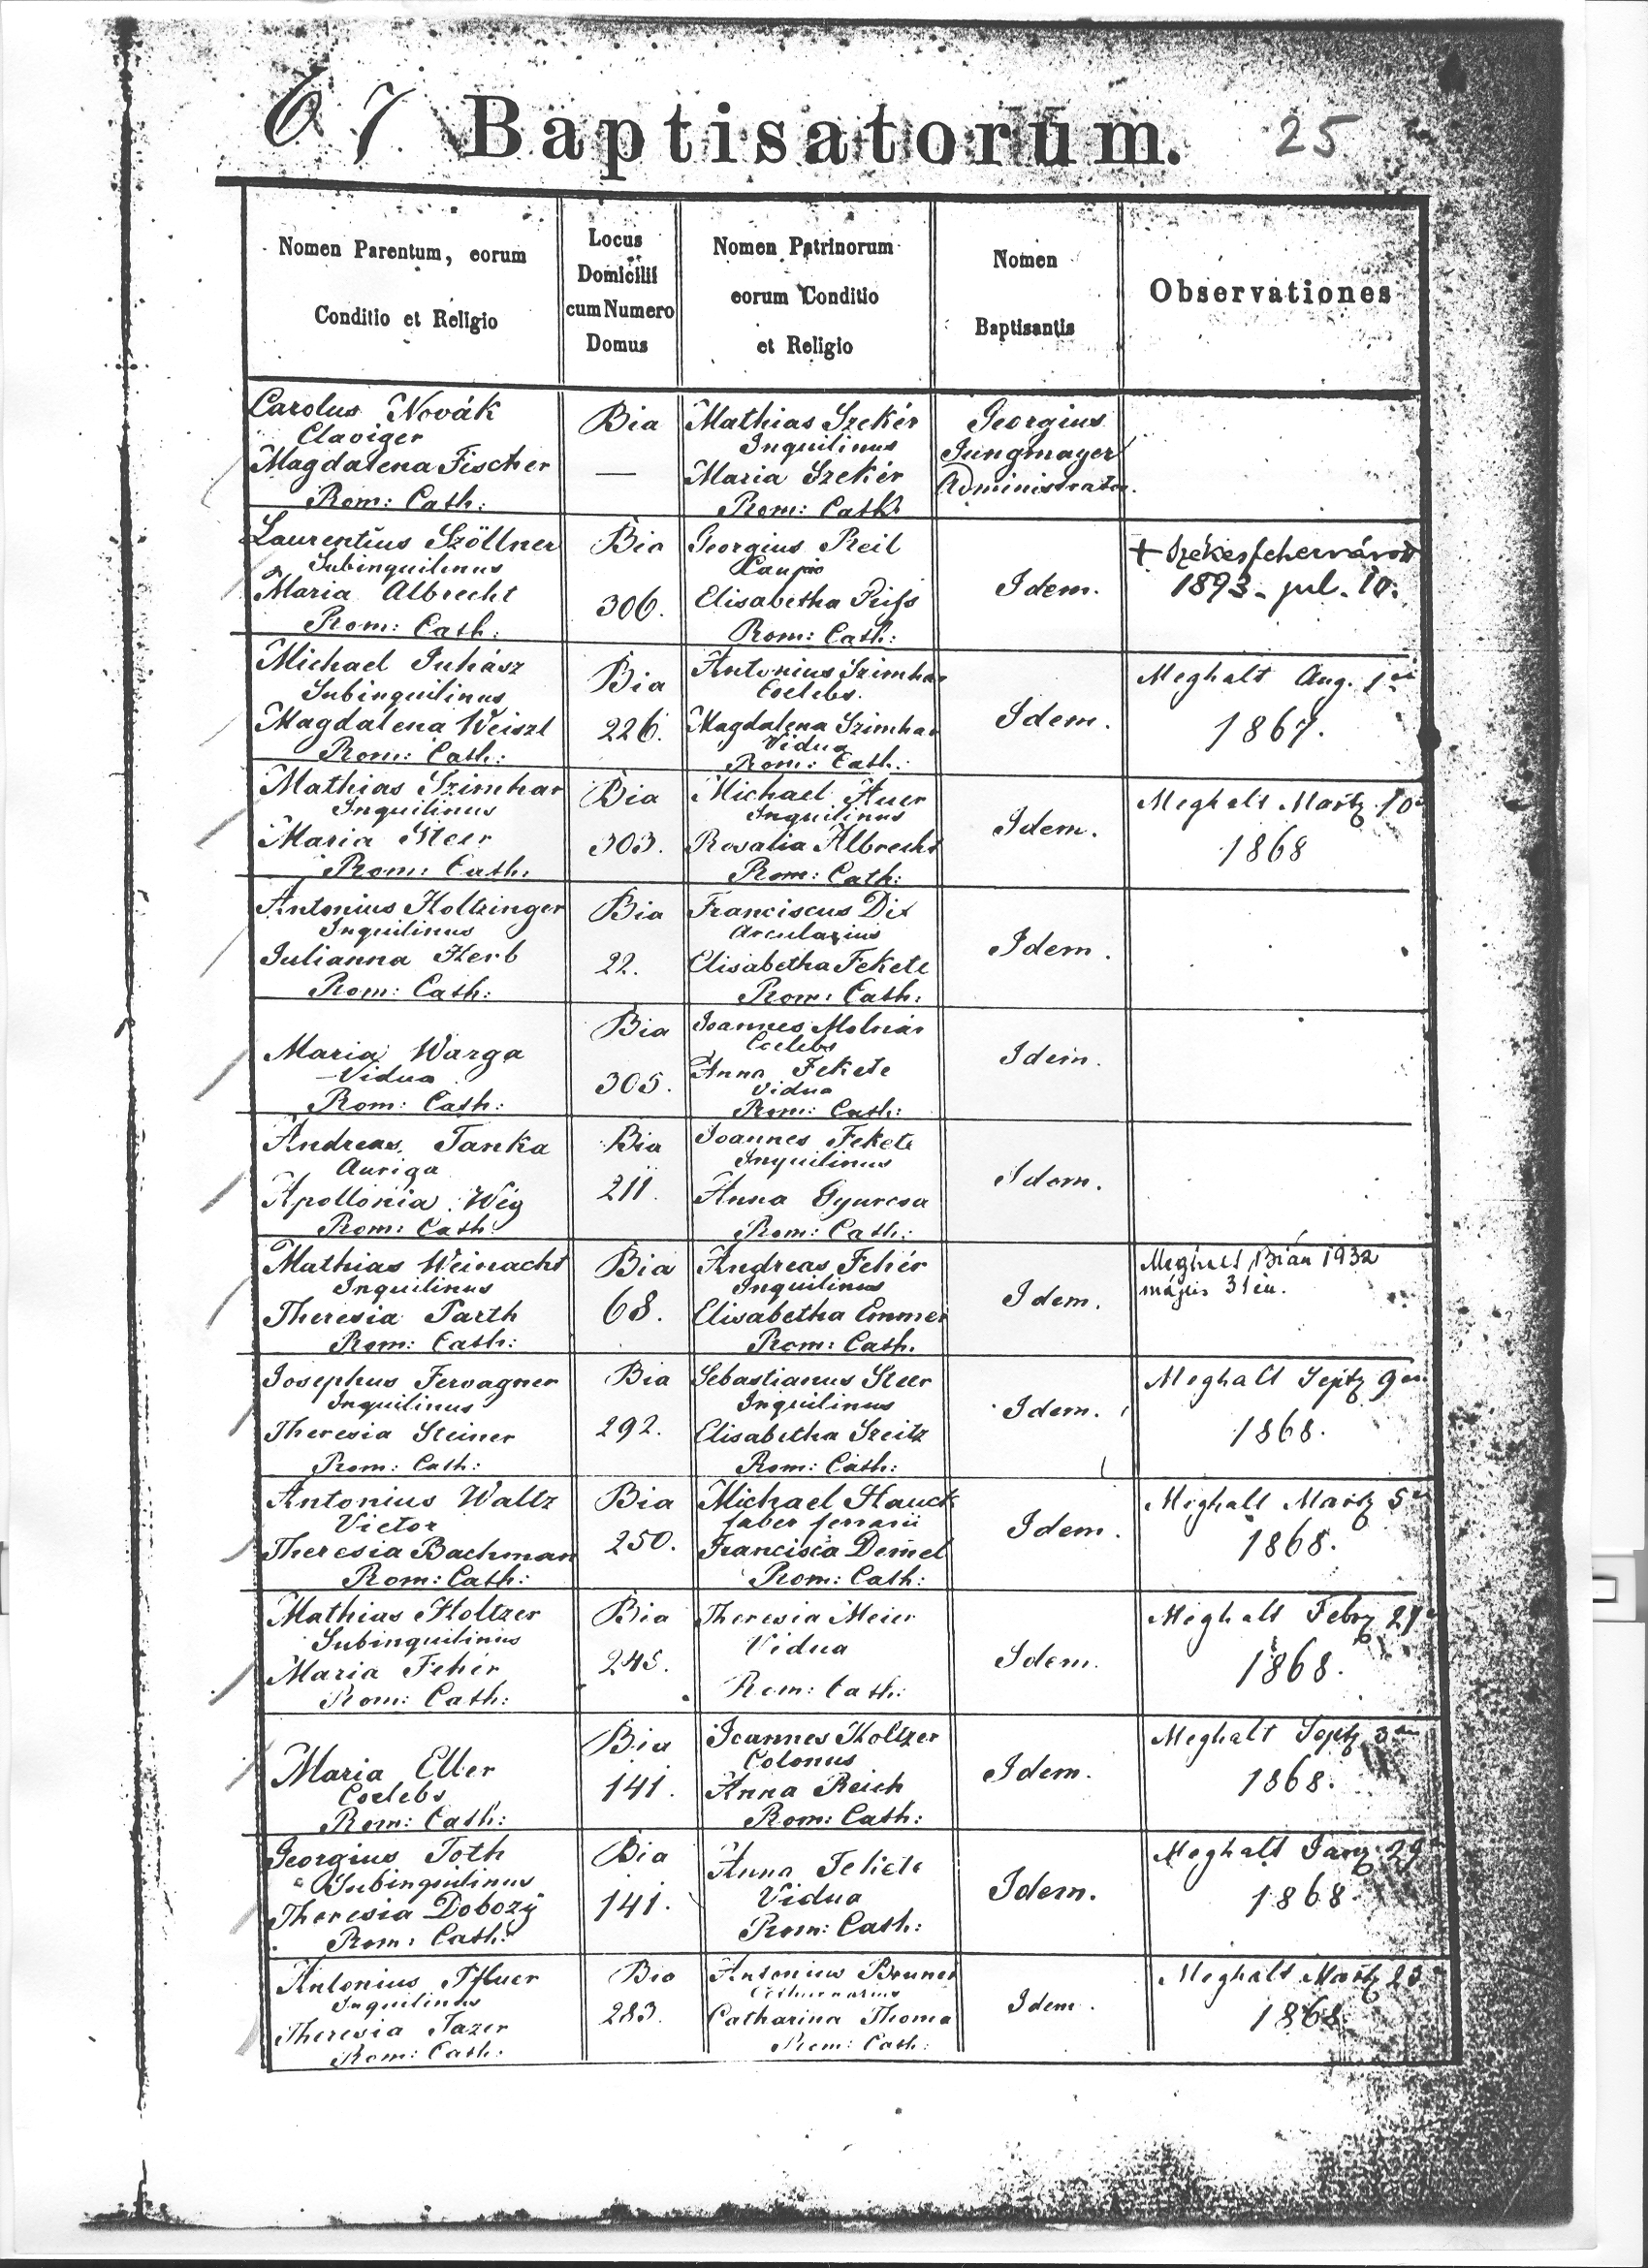 67 Baptisatorum. 25
Nomen Parentum, eorum
Conditio et Religio
Locus
Domicilii
cum Numero
Domus
Nomen Patrinorum
eorum Conditio
et Religio
Nomen
Baptisantis
Observationes
Carolus Novák
Claviger
Magdalena Fischer
Rom: Cath:
Bia
—
Mathias Szekér
Inquilinus
Maria Szekér
Rom: Cath:
Georgius
Jungmayer
Administrator.
Laurentius Szöllner
Subinquilinus
Maria Albrecht
Rom: Cath:
Bia
306.
Georgius Reil
Caupo
Elisabetha
Rom: Cath:
Idem.
+ Székesfehervárott
1893. jul. 10.
Michael Juhász
Subinquilinus
Magdalena Weiszl
Rom: Cath:
Bia
226.
Antonius Szimhar
Coelebs.
Magdalena Szimhar
Vidua
Rom: Cath:
Idem.
Meghalt Aug. 1én
1867.
Mathias Szimhar
Inquilinus
Maria Steer
Rom: Cath:
Bia
303.
Michael Auer
Inquilinus
Rosalia Albrecht
Rom: Cath:
Idem.
Meghalt Martz 10én
1868
Antonius Holtzinger
Inquilinus
Julianna Herb
Rom: Cath:
Bia
22.
Franciscus Dix
Arcularius
Elisabetha Fekete
Rom: Cath:
Idem.
Maria Warga
Vidua
Rom: Cath:
Bia
305.
Joannes Molnár
Coelebs
Anna Fekete
Vidua
Rom: Cath:
Idem.
Andreas Tanka
Auriga
Apollonia Wig
Rom: Cath:
Bia
211.
Joannes Fekete
Inquilinus
Anna Gyurcsa
Rom: Cath:
Idem.
Mathias Weinacht
Inquilinus
Theresia Parth
Rom: Cath:
Bia
68.
Andreas Fehér
Inquilinus
Elisabetha Emmer
Rom: Cath.
Idem.
Meghalt Bián 1932
május 31én.
Josephus Fervagner
Inquilinus
Theresia Steiner
Rom: Cath:
Bia
292.
Sebastianus Steer
Inquilinus
Elisabetha Szeitz
Rom: Cath:
Idem.
Meghalt Septz 9én
1868.
Antonius Waltz
Victor
Theresia Bachman
Rom: Cath:
Bia
250.
Michael Hauck
faber ferrarii
Francisca Dem̄el
Rom: Cath:
Idem.
Meghalt Martz 5én
1868.
Mathias Holtzer
Subinquilinus
Maria Fehér
Rom: Cath:
Bia
245.
Theresia Meier
Vidua
Rom: Cath:
Idem.
Meghalt Febrz
1868.
Maria Eller
Coelebs
Rom: Cath:
Bia
141.
Joannes Holtzer
Colonus
Anna Reich
Rom: Cath:
Idem.
Meghalt Septz 3án
1868.
Georgius Toth
Subinquilinus
Theresia Dobozÿ
Rom: Cath:
Bia
141.
Anna Fekete
Vidua
Rom: Cath:
Idem.
Meghalt Janz 29
1868.
Antonius Pfluer
Inquilinus
Theresia Tazer
Rom: Cath:
Bia
283.
Antonius Bruner
Catharina Thoma
Rom: Cath:
Idem.
Meghalt Martz 23
1868.